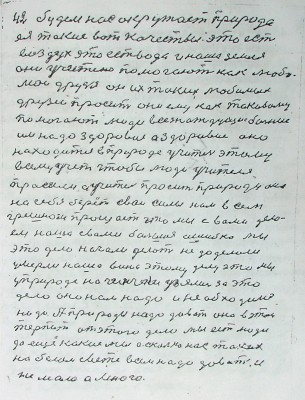 42 будем нас окружает природа
ея такие вот качества это есть
воздух это есть вода и наша земля
они учителю помогают как любо
мои друга он их таких любимых
друзей просит они ему как таковому
помогают люди всенаждущая больше
им надо здоровия а здоровие оно
находится в природе учител этому
всему учит чтобы люди учителя
просили а учител просит природу она
на себя берет свои силы нам всем
грешном прощает что мы с вами дела
ем наша с вами большая ошибка мы
это дело начали делат не доделали
умерли наша вина этому делу это мы
у природе на за это
дело оно нам надо и не обходимо
надо А природы надо давот она в этом
терпит от этого дело мы ест люди
да ещё какие мы сколко нас таких
на белом свете всем надо довать и
не мало а много.